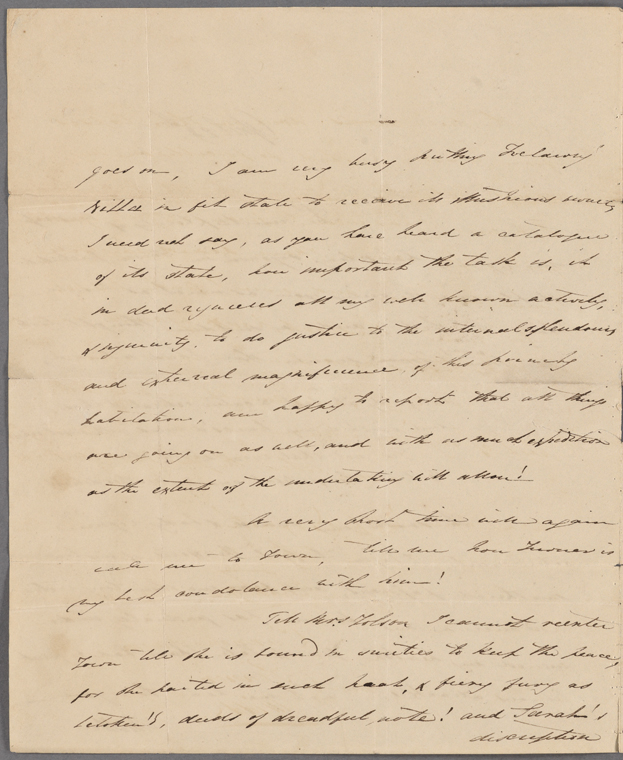 goes on, I am very busy putting Trelawny
Villa in fit state to receive its illustrious owner,
I need not say, as you have heard a catalogue
of its state, how important the task is, it
in deed requires all my well known activity,
& ingenuity to do justice to the internal splendours
and external magnificence of his princely
habitation, am happy to report that all things
are going on as well, and with as much expedition
as the extent of the undertaking will allow!
A very short time will again
call me to Town, tell me how Turner is
my best condolance with him!
Tell Mrs. Tolson I cannot reenter
Town till she is bound in sureties to keep the peace,
for she parted in such heat, & fiery fury as
betoken'd, deeds of dreadful note! and Sarah's
discription